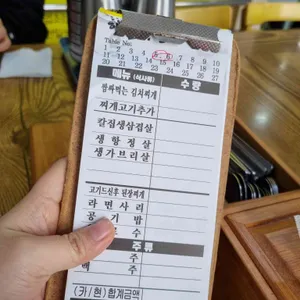 Table No.
1 2 3 4 5 6 7 8 9 10
11 12 13 14 15 16 17 18 19
20 21 22 23 24 25 26 27
메뉴 (식사류) 수 량
짬짜먹는 김치찌개
찌개고기추가
칼집생삼겹살
생항정살
생가브리살
고기드신후 된장찌개
라면사리
공기밥
수
주 류
주
맥 주
(카/현)합계금액